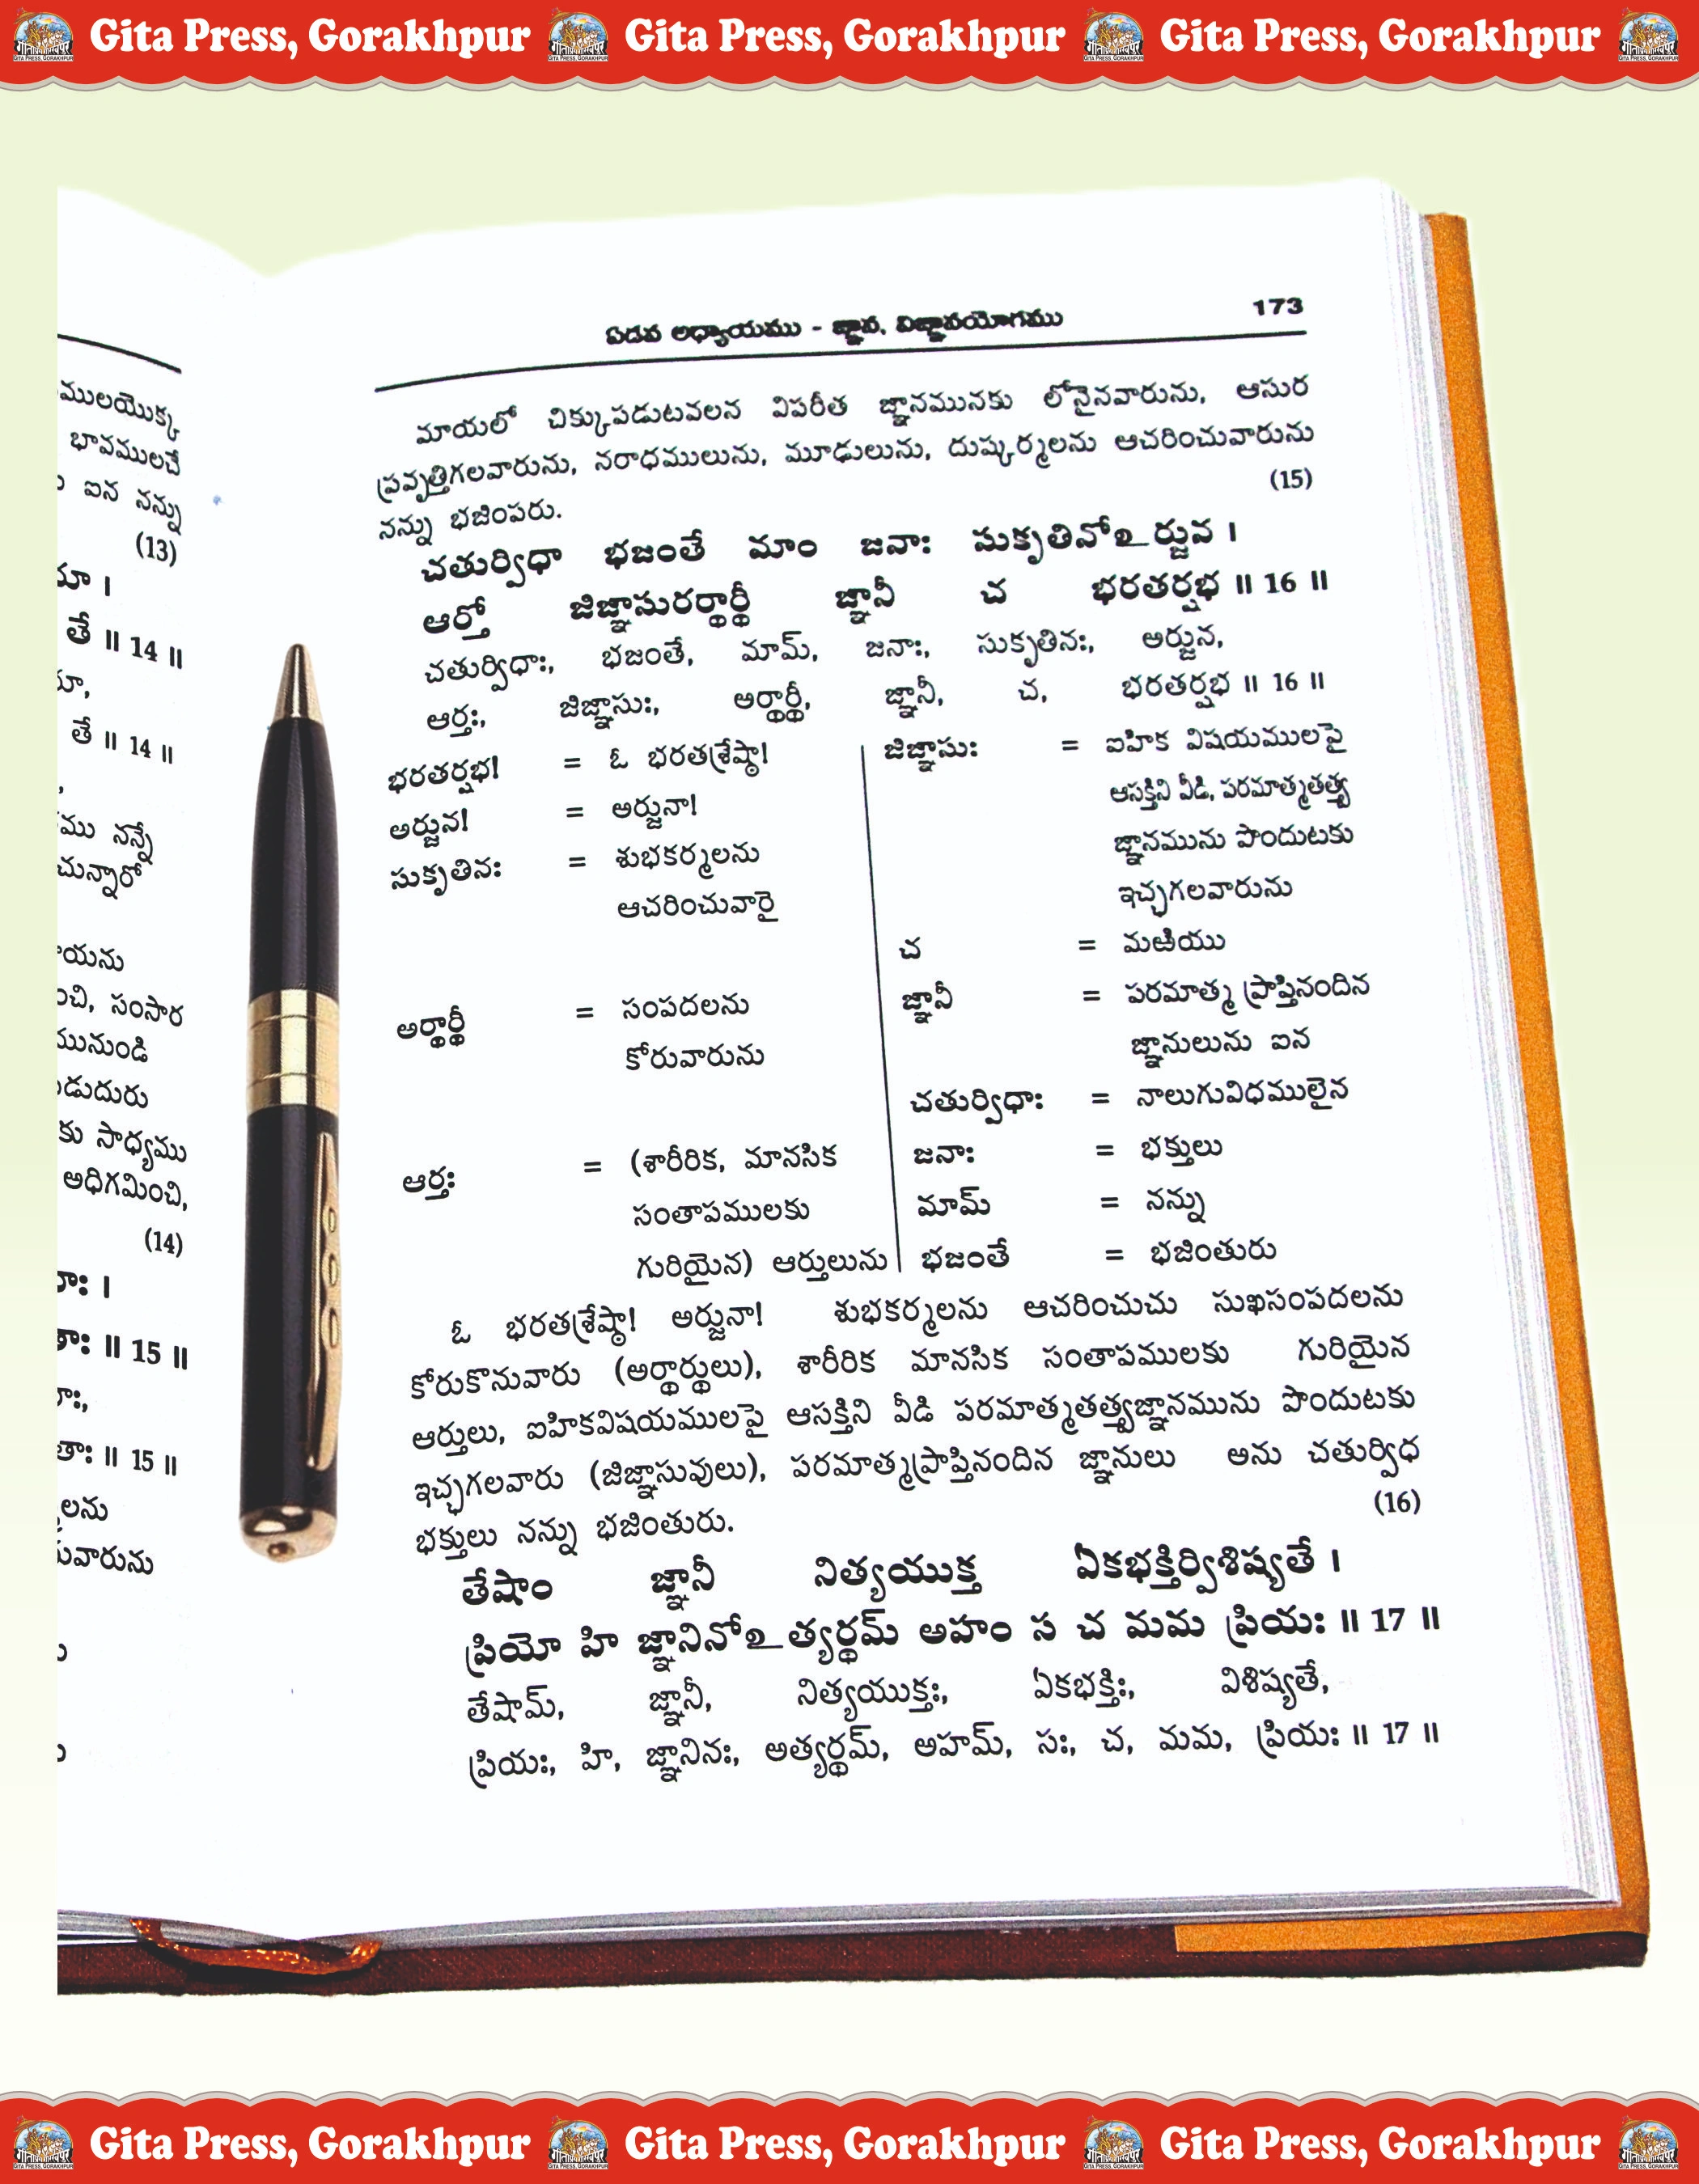 Gita Press, Gorakhpur Gita Press, Gorakhpur Gita Press, Gorakhpur
ములయొక్క
భావములచే
ఐన నన్ను
(13)
తే ॥ 14 ॥
తే ॥ 14 ॥
ము నన్నే
చున్నారో
సంసార
మునుండి
కు సాధ్యము
అధిగమించి,
(14)
॥ 15 ॥
॥ 15 ॥
173
ఏడవ అధ్యాయము - జ్ఞాన, విజ్ఞానయోగము
మాయలో చిక్కుపడుటవలన విపరీత జ్ఞానమునకు లోనైనవారును, ఆసుర
ప్రవృత్తిగలవారును, నరాధములును, మూఢులును, దుష్కర్మలను ఆచరించువారును
నన్ను భజింపరు. (15)
చతుర్విధా భజంతే మాం జనాః సుకృతినోఽర్జున ।
ఆర్తో జిజ్ఞాసురర్థార్థీ జ్ఞానీ చ భరతర్షభ ॥ 16 ॥
చతుర్విధాః, భజంతే, మామ్, జనాః, సుకృతినః, అర్జున,
ఆర్తః, జిజ్ఞాసుః, అర్థార్థీ, జ్ఞానీ, చ, భరతర్షభ ॥ 16 ॥
భరతర్షభ! = ఓ భరతశ్రేష్ఠా!
అర్జున! = అర్జునా!
సుకృతినః = శుభకర్మలను
ఆచరించువారై
అర్థార్థీ = సంపదలను
కోరువారును
ఆర్తః = (శారీరిక, మానసిక
సంతాపములకు
గురియైన) ఆర్తులును
జిజ్ఞాసుః = ఐహిక విషయములపై
ఆసక్తిని వీడి, పరమాత్మతత్త్వ
జ్ఞానమును పొందుటకు
ఇచ్ఛగలవారును
చ = మఱియు
జ్ఞానీ = పరమాత్మ ప్రాప్తినందిన
జ్ఞానులును ఐన
చతుర్విధాః = నాలుగువిధములైన
జనాః = భక్తులు
మామ్ = నన్ను
భజంతే = భజింతురు
ఓ భరతశ్రేష్ఠా! అర్జునా! శుభకర్మలను ఆచరించుచు సుఖసంపదలను
కోరుకొనువారు (అర్థార్థులు), శారీరిక మానసిక సంతాపములకు గురియైన
ఆర్తులు, ఐహికవిషయములపై ఆసక్తిని వీడి పరమాత్మతత్త్వజ్ఞానమును పొందుటకు
ఇచ్ఛగలవారు (జిజ్ఞాసువులు), పరమాత్మప్రాప్తినందిన జ్ఞానులు అను చతుర్విధ
భక్తులు నన్ను భజింతురు. (16)
తేషాం జ్ఞానీ నిత్యయుక్త ఏకభక్తిర్విశిష్యతే ।
ప్రియో హి జ్ఞానినోఽత్యర్థమ్ అహం స చ మమ ప్రియః ॥ 17 ॥
తేషామ్, జ్ఞానీ, నిత్యయుక్తః, ఏకభక్తిః, విశిష్యతే,
ప్రియః, హి, జ్ఞానినః, అత్యర్థమ్, అహమ్, సః, చ, మమ, ప్రియః ॥ 17 ॥
Gita Press, Gorakhpur Gita Press, Gorakhpur Gita Press, Gorakhpur